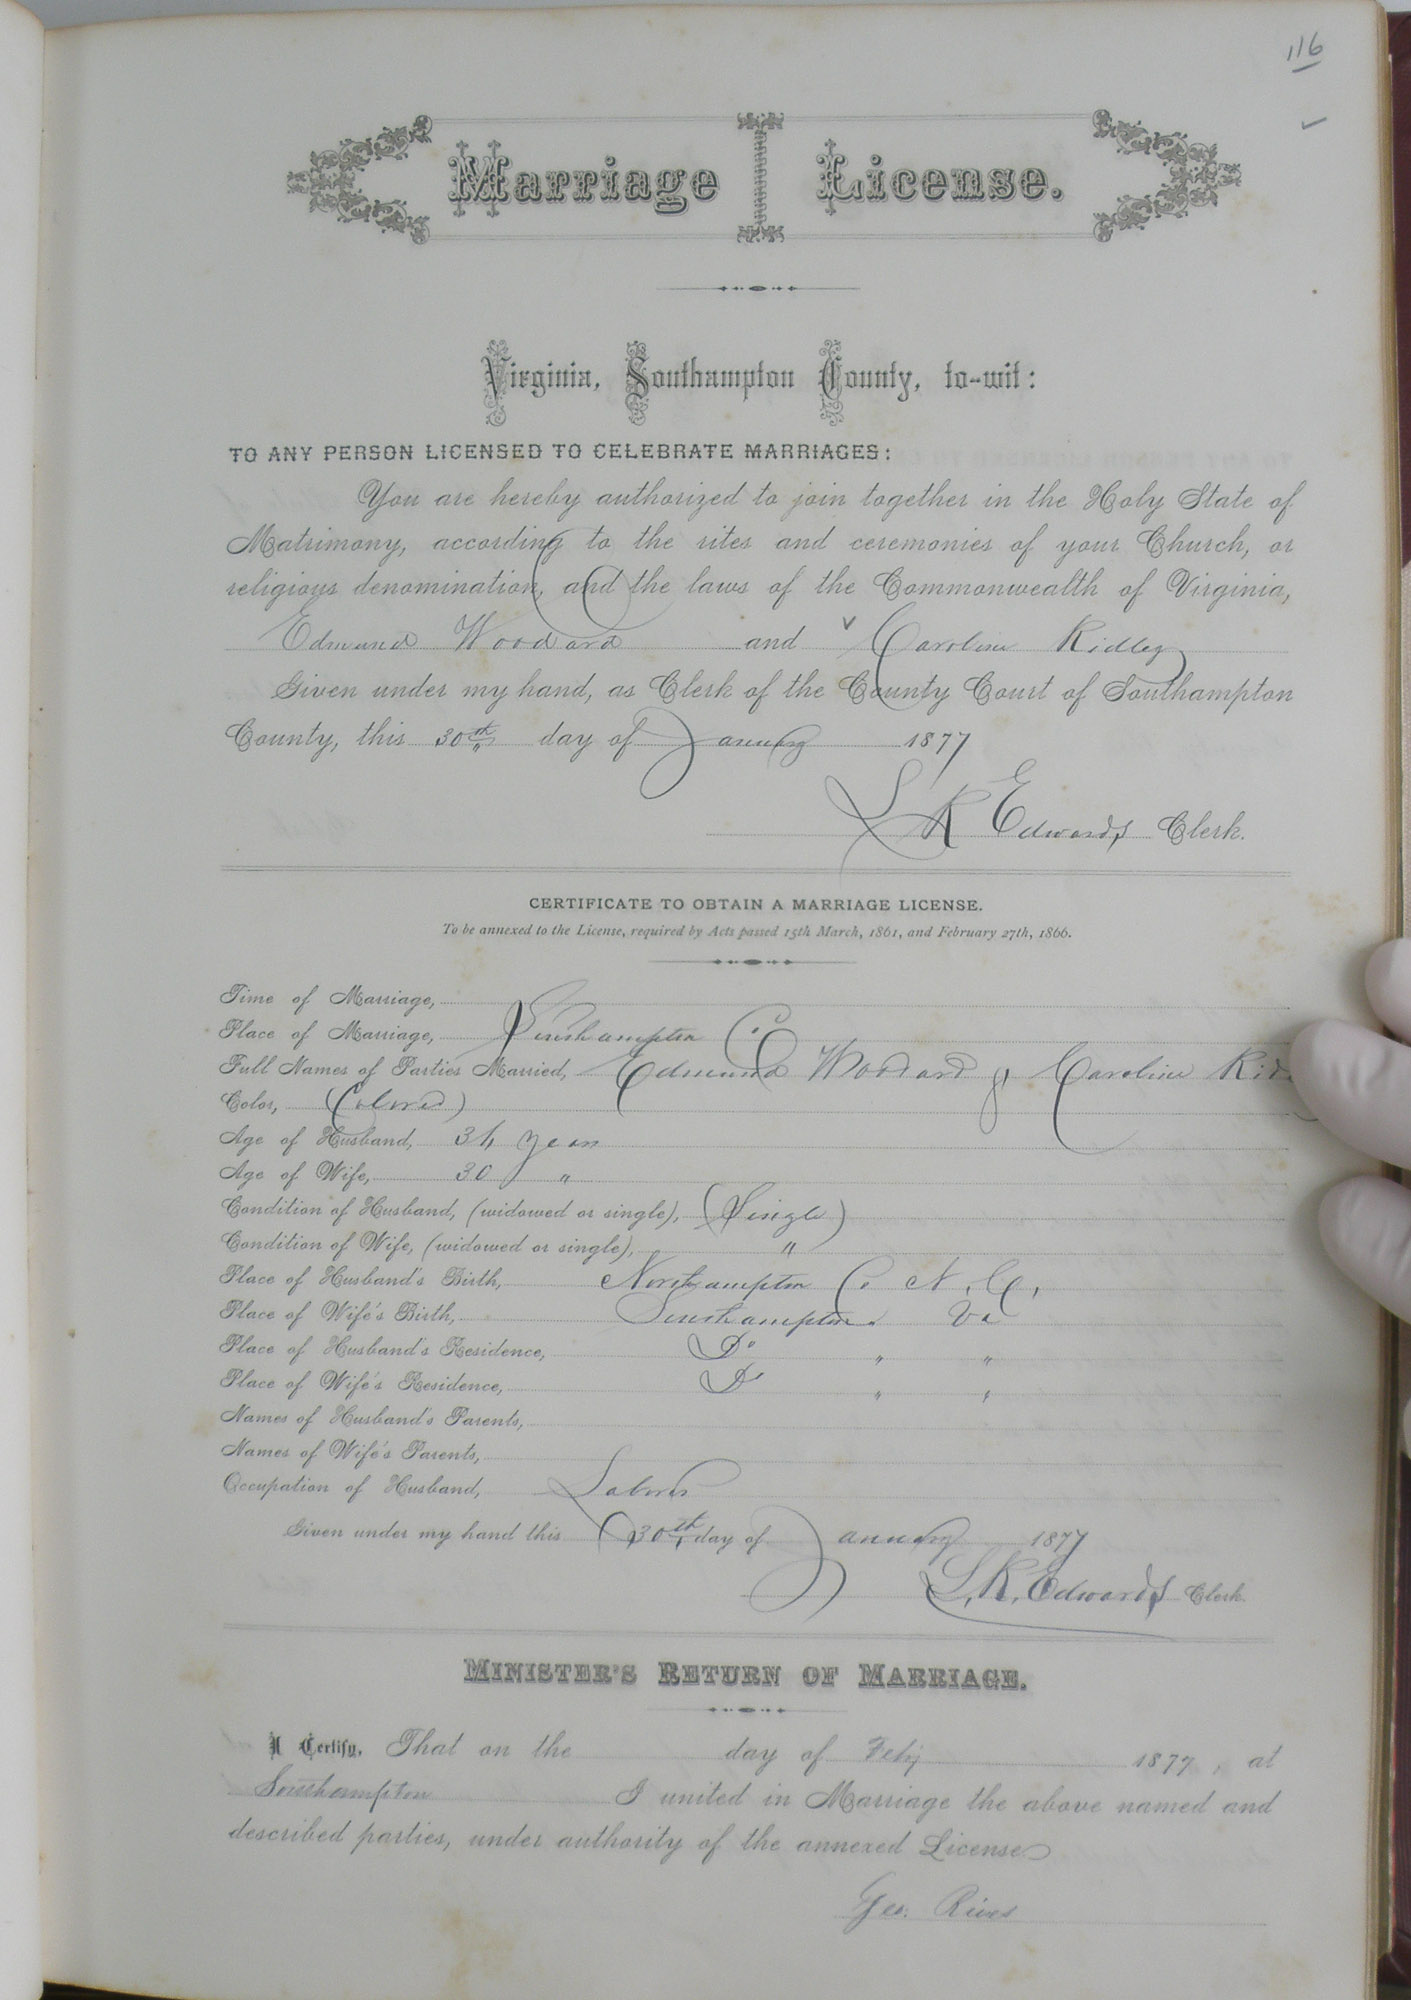 116
Marriage License.
Virginia, Southampton County, to-wit:
TO ANY PERSON LICENSED TO CELEBRATE MARRIAGES:
You are hereby authorized to join together in the Holy State of
Matrimony, according to the rites and ceremonies of your Church, or
religious denomination, and the laws of the Commonwealth of Virginia,
Edmund Woodard and Caroline Ridley
Given under my hand, as Clerk of the County Court of Southampton
County, this 30th day of January 1877
L R Edwards Clerk.
CERTIFICATE TO OBTAIN A MARRIAGE LICENSE.
To be annexed to the License, required by Acts passed 15th March, 1861, and February 27th, 1866.
Time of Marriage,
Place of Marriage, Southampton Co
Full Names of Parties Married, Edmund Woodard & Caroline Rid
Color, (Colored)
Age of Husband, years
Age of Wife, 30 "
Condition of Husband, (widowed or single), (Single)
Condition of Wife, (widowed or single), "
Place of Husband's Birth, Northampton Co N.C,
Place of Wife's Birth, Southampton. Va
Place of Husband's Residence, Do " "
Place of Wife's Residence, Do " "
Names of Husband's Parents,
Names of Wife's Parents,
Occupation of Husband, Laborer
Given under my hand this 30th day of January 1877
L. R. Edwards Clerk.
MINISTER'S RETURN OF MARRIAGE.
I Certify, That on the day of Feby 1877, at
Southampton I united in Marriage the above named and
described parties, under authority of the annexed License
Geo. Rives